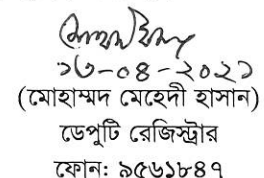 ১৩-০৪-২০২১
(মোহাম্মদ মেহেদী হাসান)
ডেপুটি রেজিস্ট্রার
ফোন: ৯৫৬১৮৪৭